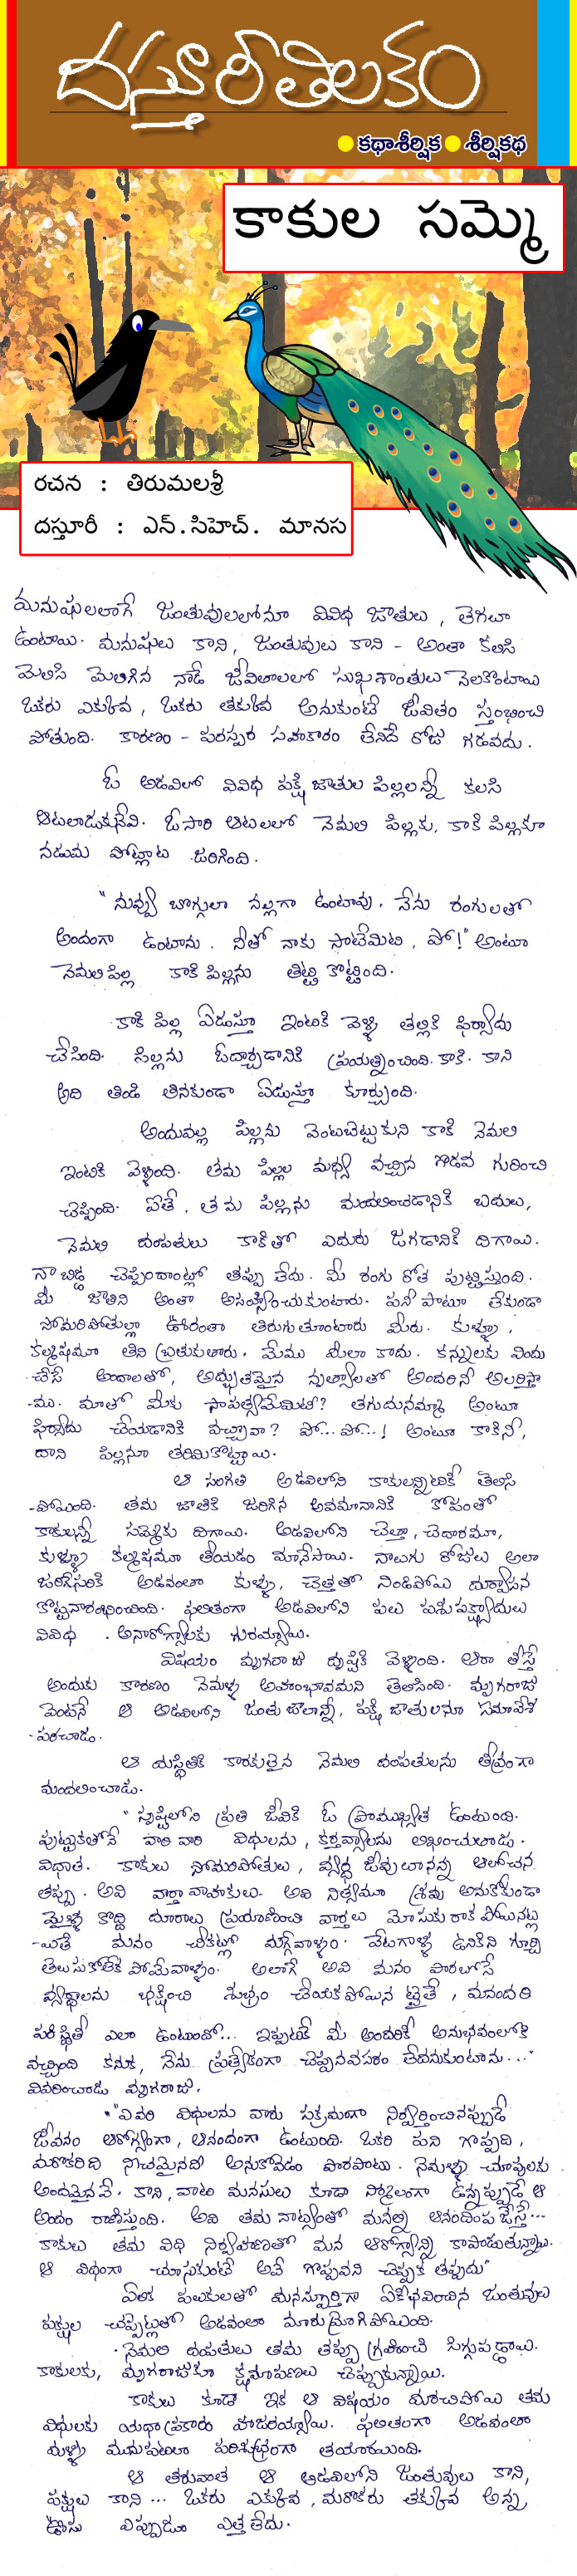 దస్తూరీ తిలకం
కథాశీర్షిక శీర్షికథ
కాకుల సమ్మె
రచన : తిరుమలశ్రీ
దస్తూరీ : ఎన్.సిహెచ్. మానస
మనుషులలాగే జంతువులలోనూ వివిధ జాతులు, తెగలూ
ఉంటాయి. మనుషులు కాని, జంతువులు కాని - అంతా కలిసి
మెలిసి మెలిగిన నాడే జీవితాలలో సుఖశాంతులు నెలకొంటాయి
ఒకరు ఎక్కువ, ఒకరు తక్కువ అనుకుంటే జీవితం స్తంభించి
పోతుంది. కారణం - పరస్పర సహకారం లేనిదే రోజు గడవదు.
ఓ అడవిలో వివిధ పక్షి జాతుల పిల్లలన్నీ కలసి
ఆటలాడుకునేవి. ఓసారి ఆటలలో నెమలి పిల్లకు, కాకి పిల్లకూ
నడుమ పోట్లాట జరిగింది.
"నువ్వు బొగ్గులా నల్లగా ఉంటావు. నేను రంగులతో
అందంగా ఉంటాను. నీతో నాకు సాటేమిటి, పో!" అంటూ
నెమలి పిల్ల కాకి పిల్లను తిట్టి కొట్టింది.
కాకి పిల్ల ఏడుస్తూ ఇంటికి వెళ్ళి తల్లికి ఫిర్యాదు
చేసింది. పిల్లను ఓదార్చడానికి ప్రయత్నించింది కాకి. కాని
అది తిండి తినకుండా ఏడుస్తూ కూర్చుంది.
అందువల్ల పిల్లను వెంటబెట్టుకుని కాకి నెమలి
ఇంటికి వెళ్ళింది. తమ పిల్లల మధ్య వచ్చిన గొడవ గురించి
చెప్పింది. ఐతే, తమ పిల్లను మందలించడానికి బదులు,
నెమలి దంపతులు కాకితో ఎదురు జగడానికి దిగాయి.
నా బిడ్డ చెప్పిందాంట్లో తప్పు లేదు. మీ రంగు రోత పుట్టిస్తుంది.
మీ జాతిని అంతా అసహ్యించుకుంటారు. పనీ పాటూ లేకుండా
సోమరిపోతుల్లా ఊరంతా తిరుగుతూంటారు మీరు. కుళ్ళూ,
కల్మషమూ తిని బ్రతుకుతారు. మేము మీలా కాదు. కన్నులకు విందు
చేసే అందాలతో, అద్భుతమైన నృత్యాలతో అందరినీ అలరిస్తా
-ము. మాతో మీకు సాపత్యమేమిటి? తగుదునమ్మా అంటూ
ఫిర్యాదు చేయడానికి వచ్చావా? పో... పో...! అంటూ కాకినీ,
దాని పిల్లనూ తరిమికొట్టాయి.
ఆ సంగతి అడవిలోని కాకులన్నిటికీ తెలిసి
-పోయింది. తమ జాతికి జరిగిన అవమానానికి కోపంతో
కాకులన్నీ సమ్మెకు దిగాయి. అడవిలోని చెత్తా, చెదారమూ,
కుళ్ళూ కల్మషమూ తీయడం మానేసాయి. నాలుగు రోజులు అలా
జరిగేసరికి అడవంతా కుళ్ళు, చెత్తతో నిండిపోయి దుర్వాసన
కొట్టనారంభించింది. ఫలితంగా అడవిలోని పలు పశుపక్ష్యాదులు
వివిధ అనారోగ్యాలకు గురయ్యాయి.
విషయం మృగరాజు దృష్టికి వెళ్ళింది. ఆరా తీస్తే
అందుకు కారణం నెమళ్ళ అహంభావమని తెలిసింది. మృగరాజు
వెంటనే ఆ అడవిలోని జంతుజాలాన్నీ, పక్షి జాతులనూ సమావేశ
-పరచాడు.
ఆ దుస్థితికి కారకులైన నెమలి దంపతులను తీవ్రంగా
మందలించాడు.
"సృష్టిలోని ప్రతి జీవికి ఓ ప్రాముఖ్యత ఉంటుంది.
పుట్టుకతోనే వారి వారి విధులను, కర్తవ్యాలను లిఖించుతాడు
విధాత. కాకులు సోమరిపోతులు, వ్యర్ధ జీవులూనన్న ఆలోచన
తప్పు. అవి వార్తావాహకులు. అవి నిత్యమూ శ్రమ అనుకోకుండా
మైళ్ళ కొద్దీ దూరాలు ప్రయాణించి వార్తలు మోసుకు రాకపోయినట్ల
-యితే మనం చీకట్లో మగ్గేవాళ్ళం. వేటగాళ్ళ ఉనికిని గూర్చి
తెలుసుకోలేక పోయేవాళ్ళం. అలాగే అవి మనం పారబోసే
వ్యర్థాలను భక్షించి శుభ్రం చేయకపోయినట్లైతే, మనందరి
పరిస్థితి ఎలా ఉంటుందో... ఇప్పటికే మీ అందరికీ అనుభవంలోకి
వచ్చింది కనుక, నేను ప్రత్యేకంగా చెప్పనవసరం లేదనుకుంటాను..."
వివరించాడు మృగరాజు.
"ఎవరి విధులను వారు సక్రమంగా నిర్వర్తించినప్పుడే
జీవనం ఆరోగ్యంగా, ఆనందంగా ఉంటుంది. ఒకరి పని గొప్పది,
మరొకరిది నీచమైనదీ అనుకోవడం పొరపాటు. నెమళ్ళు చూపులకు
అందమైనవే. కాని, వాటి మనసులు కూడా నిర్మలంగా ఉన్నప్పుడే ఆ
అందం రాణిస్తుంది. అవి తమ నాట్యంతో మనల్ని ఆనందింప జేస్తే...
కాకులు తమ విధి నిర్వహణతో మన ఆరోగ్యాన్ని కాపాడుతున్నాయి.
ఆ విధంగా చూసుకుంటే అవే గొప్పవని చెప్పక తప్పదు"
ఏలిక పలుకులతో మనస్ఫూర్తిగా ఏకీభవించిన జంతువులు
పక్షుల చప్పట్లతో అడవంతా మారుమ్రోగిపోయింది.
నెమలి దంపతులు తమ తప్పు గ్రహించి సిగ్గుపడ్డాయి.
కాకులకు, మృగరాజుకూ క్షమాపణలు చెప్పుకున్నాయి.
కాకులు కూడా ఇక ఆ విషయం మరచిపోయి తమ
విధులకు యథాప్రకారం హాజరయ్యాయి. ఫలితంగా అడవంతా
మళ్ళీ మునుపటిలా పరిశుభ్రంగా తయారయింది.
ఆ తరువాత ఆ అడవిలోని జంతువులు కాని,
పక్షులు కాని... ఒకరు ఎక్కువ, మరొకరు తక్కువ అన్న
ఊసు ఎప్పుడూ ఎత్తలేదు.